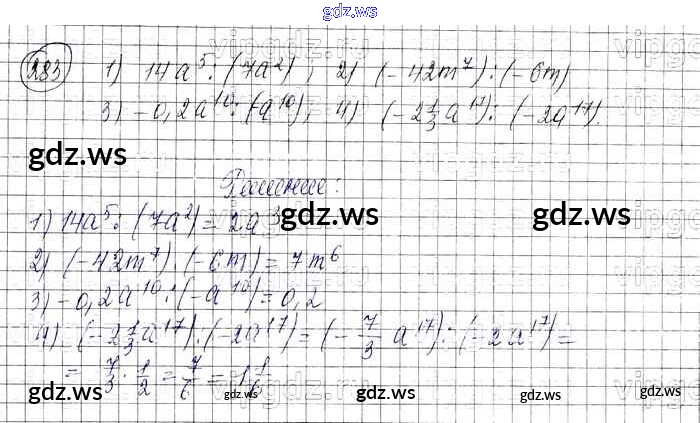 gdz.ws
283 1) 14a⁵ : (7a²); 2) (-42m⁷) : (-6m)
3) -0,2a¹⁰ : (-a¹⁰); 4) (-2 1/3 a¹⁷) : (-2a¹⁷).
gdz.ws
Решение:
1) 14a⁵ : (7a²) = 2a³
gdz.ws gdz.ws
2) (-42m⁷) : (-6m) = 7m⁶
3) -0,2a¹⁰ : (-a¹⁰) = 0,2
4) (-2 1/3 a¹⁷) : (-2a¹⁷) = (-7/3 a¹⁷) : (-2a¹⁷) =
= 7/3 · 1/2 = 7/6 = 1 1/6
gdz.ws gdz.ws gdz.ws gdz.ws gdz.ws